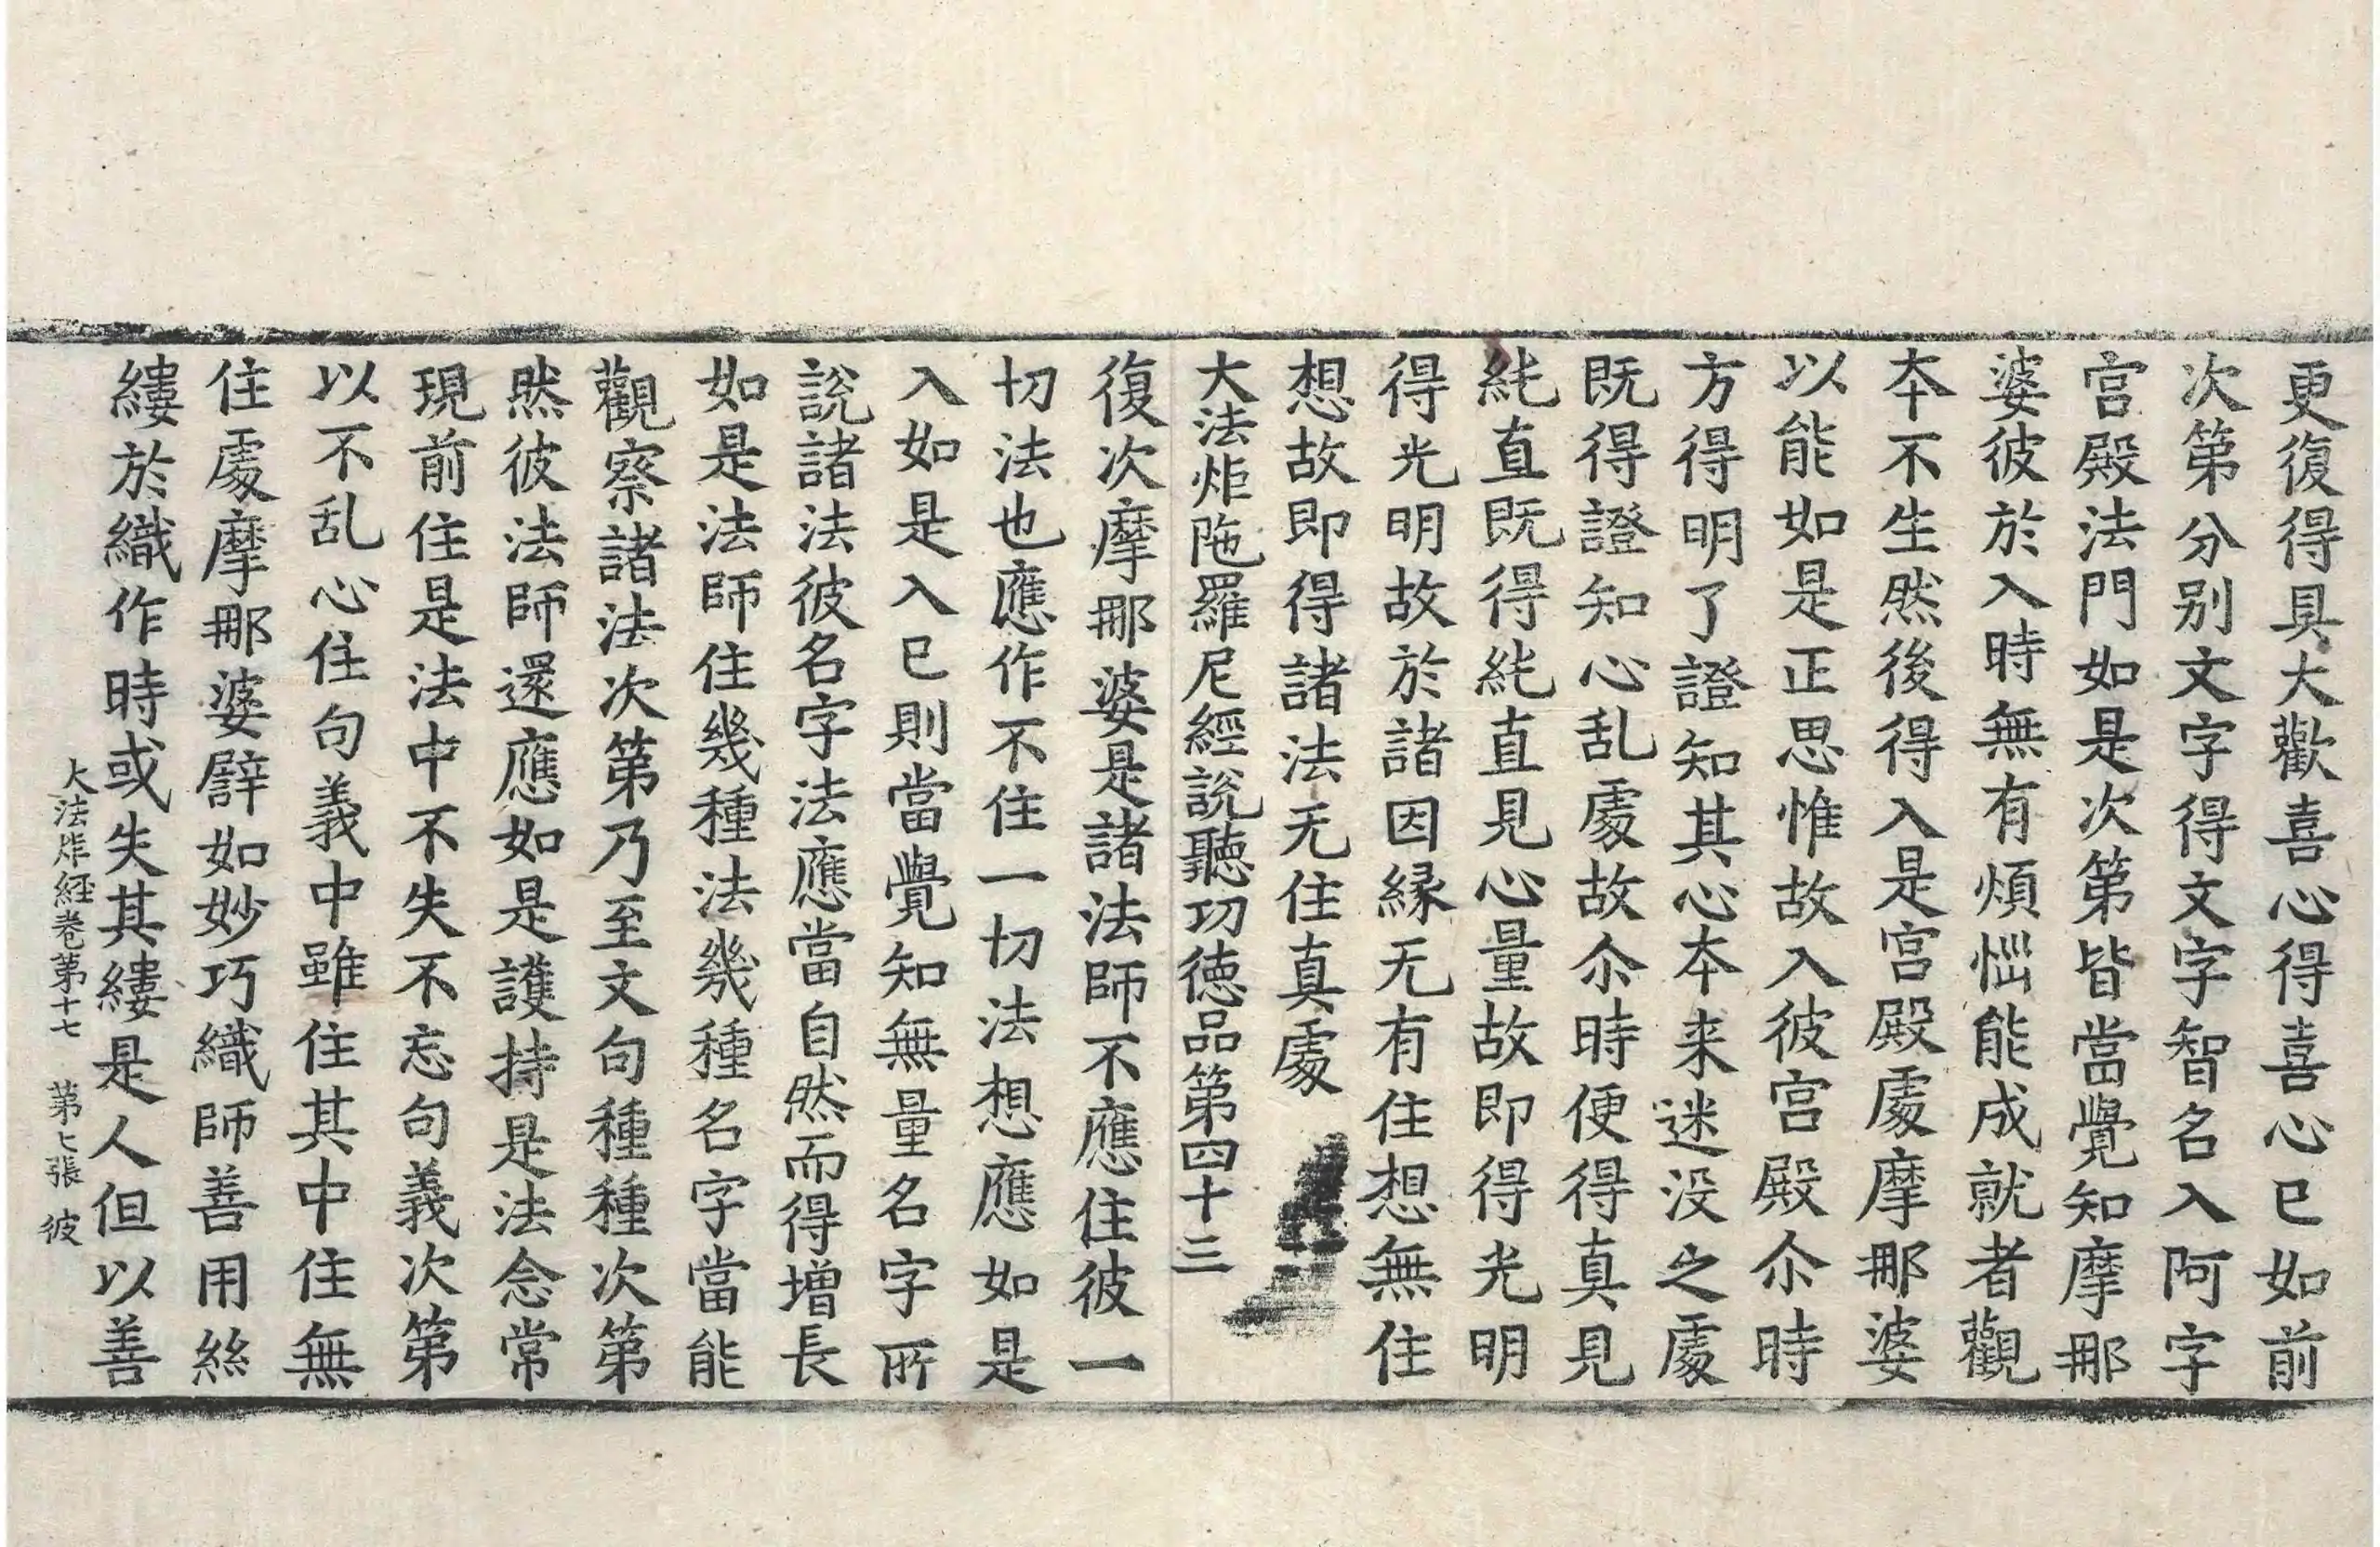 更復得具大歡喜心得喜心已如前
次第分别文字得文字智名入阿字
宫殿法門如是次第皆當覺知摩那
婆彼於入時無有煩惱能成就者觀
夲不生然後得入是宫殿處摩那婆
以能如是正思惟故入彼宫殿尒時
方得明了證知其心夲来迷没之處
既得證知心乱處故尒時便得真見
純直既得純直見心量故即得光明
得光明故於諸因縁无有住想無住
想故即得諸法无住真處
大法炬陁羅尼經說聽功徳品第四十三
復次摩那婆是諸法師不應住彼一
切法也應作不住一切法想應如是
入如是入已則當覺知無量名字所
說諸法彼名字法應當自然而得增長
如是法師住幾種法幾種名字當能
觀察諸法次第乃至文句種種次第
然彼法師還應如是護持是法念常
現前住是法中不失不忘句義次第
以不乱心住句義中雖住其中住無
住處摩那婆辟如妙巧織師善用絲
縷於織作時或失其縷是人但以善
大法炬経卷第十七 第七張 彼